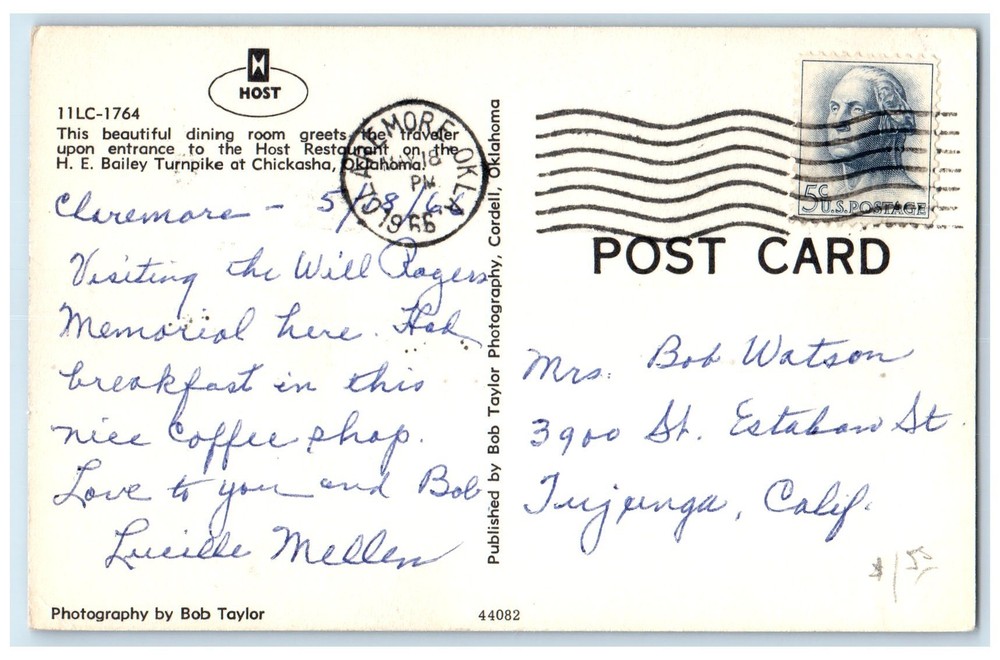 HOST
11LC-1764
This beautiful dining room greets the traveler
upon entrance to the Host Restaurant on the
H. E. Bailey Turnpike at Chickasha, Oklahoma.
CLAREMORE, OKLA
MAY 18
PM
1966
Claremore - 5/18/66
Visiting the Will Rogers
Memorial here. Had
breakfast in this
nice coffee shop.
Love to you and Bob
Lucille Mellen
Photography by Bob Taylor
44082
Published by Bob Taylor Photography, Cordell, Oklahoma
5c
U.S. POSTAGE
POST CARD
Mrs. Bob Watson
3900 St. Estaban St
Tujunga, Calif.
$1.50